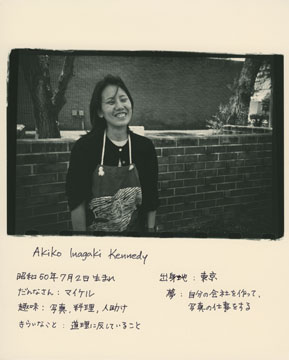 Akiko Inagaki Kennedy
昭和50年7月2日生まれ
だんなさん：マイケル
趣味：写真、料理、人助け
きらいなこと：道理に反していること
出身地：東京
夢：自分の会社を作って、
写真の仕事をする